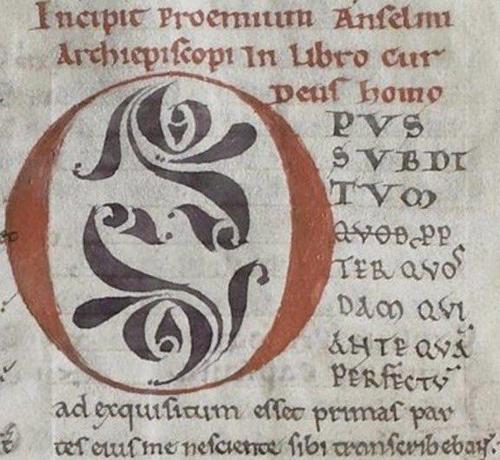 Incipit Proemium Anselmi
Archiepiscopi In Libro Cur
Deus homo
O PUS
SUBDI
TUM
QUOD PP
TER QUOS
DAM QUI
ANTE QUĀ
PERFECTŪ
ad exquisitum esset primas par
tes eius me nesciente sibi transcribebant.